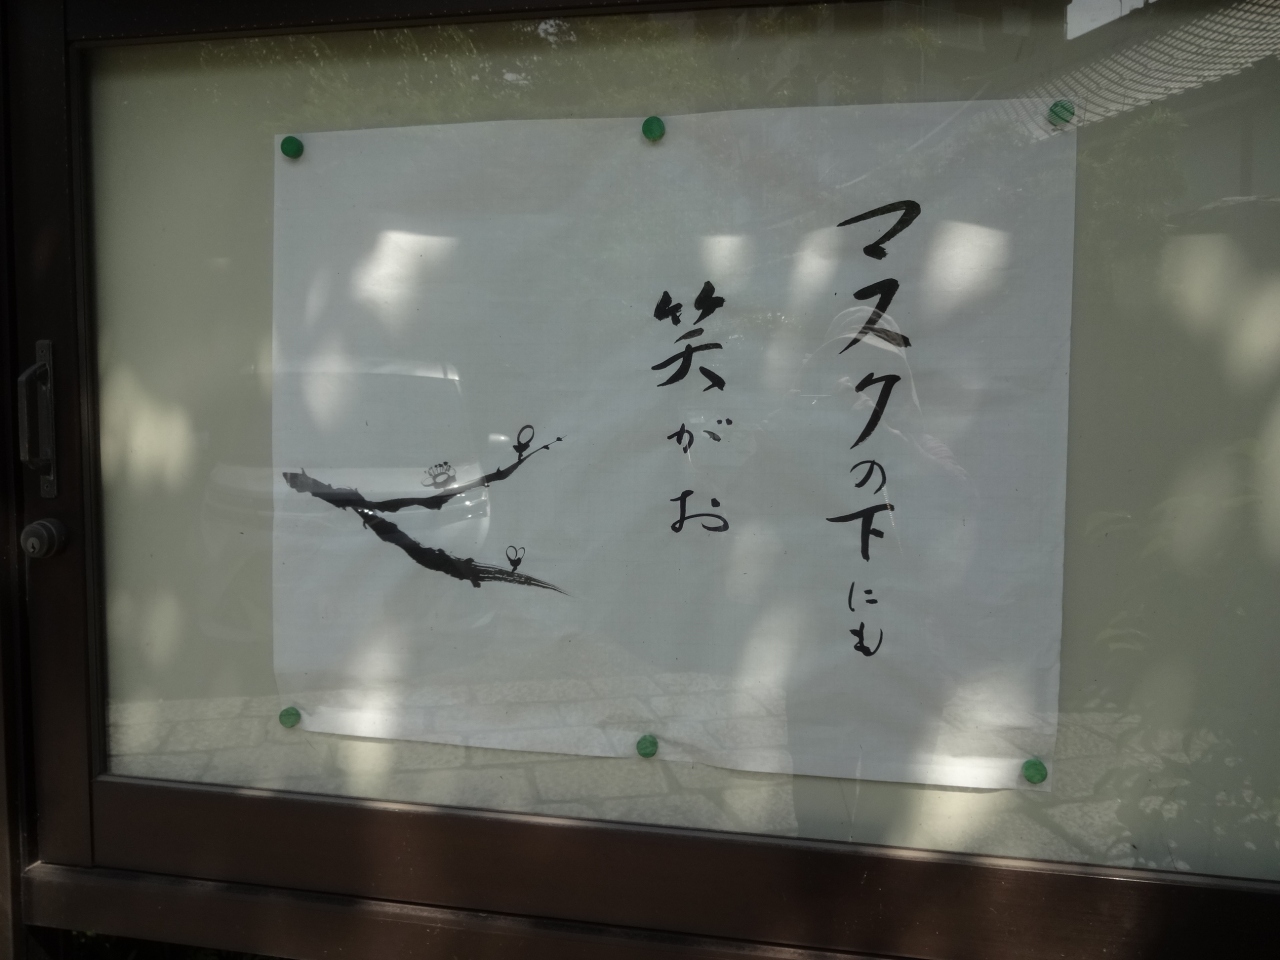 マスクの下にも
笑がお